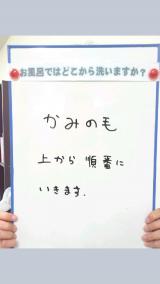 お風呂ではどこから洗いますか？
かみの毛
上から順番に
いきます.